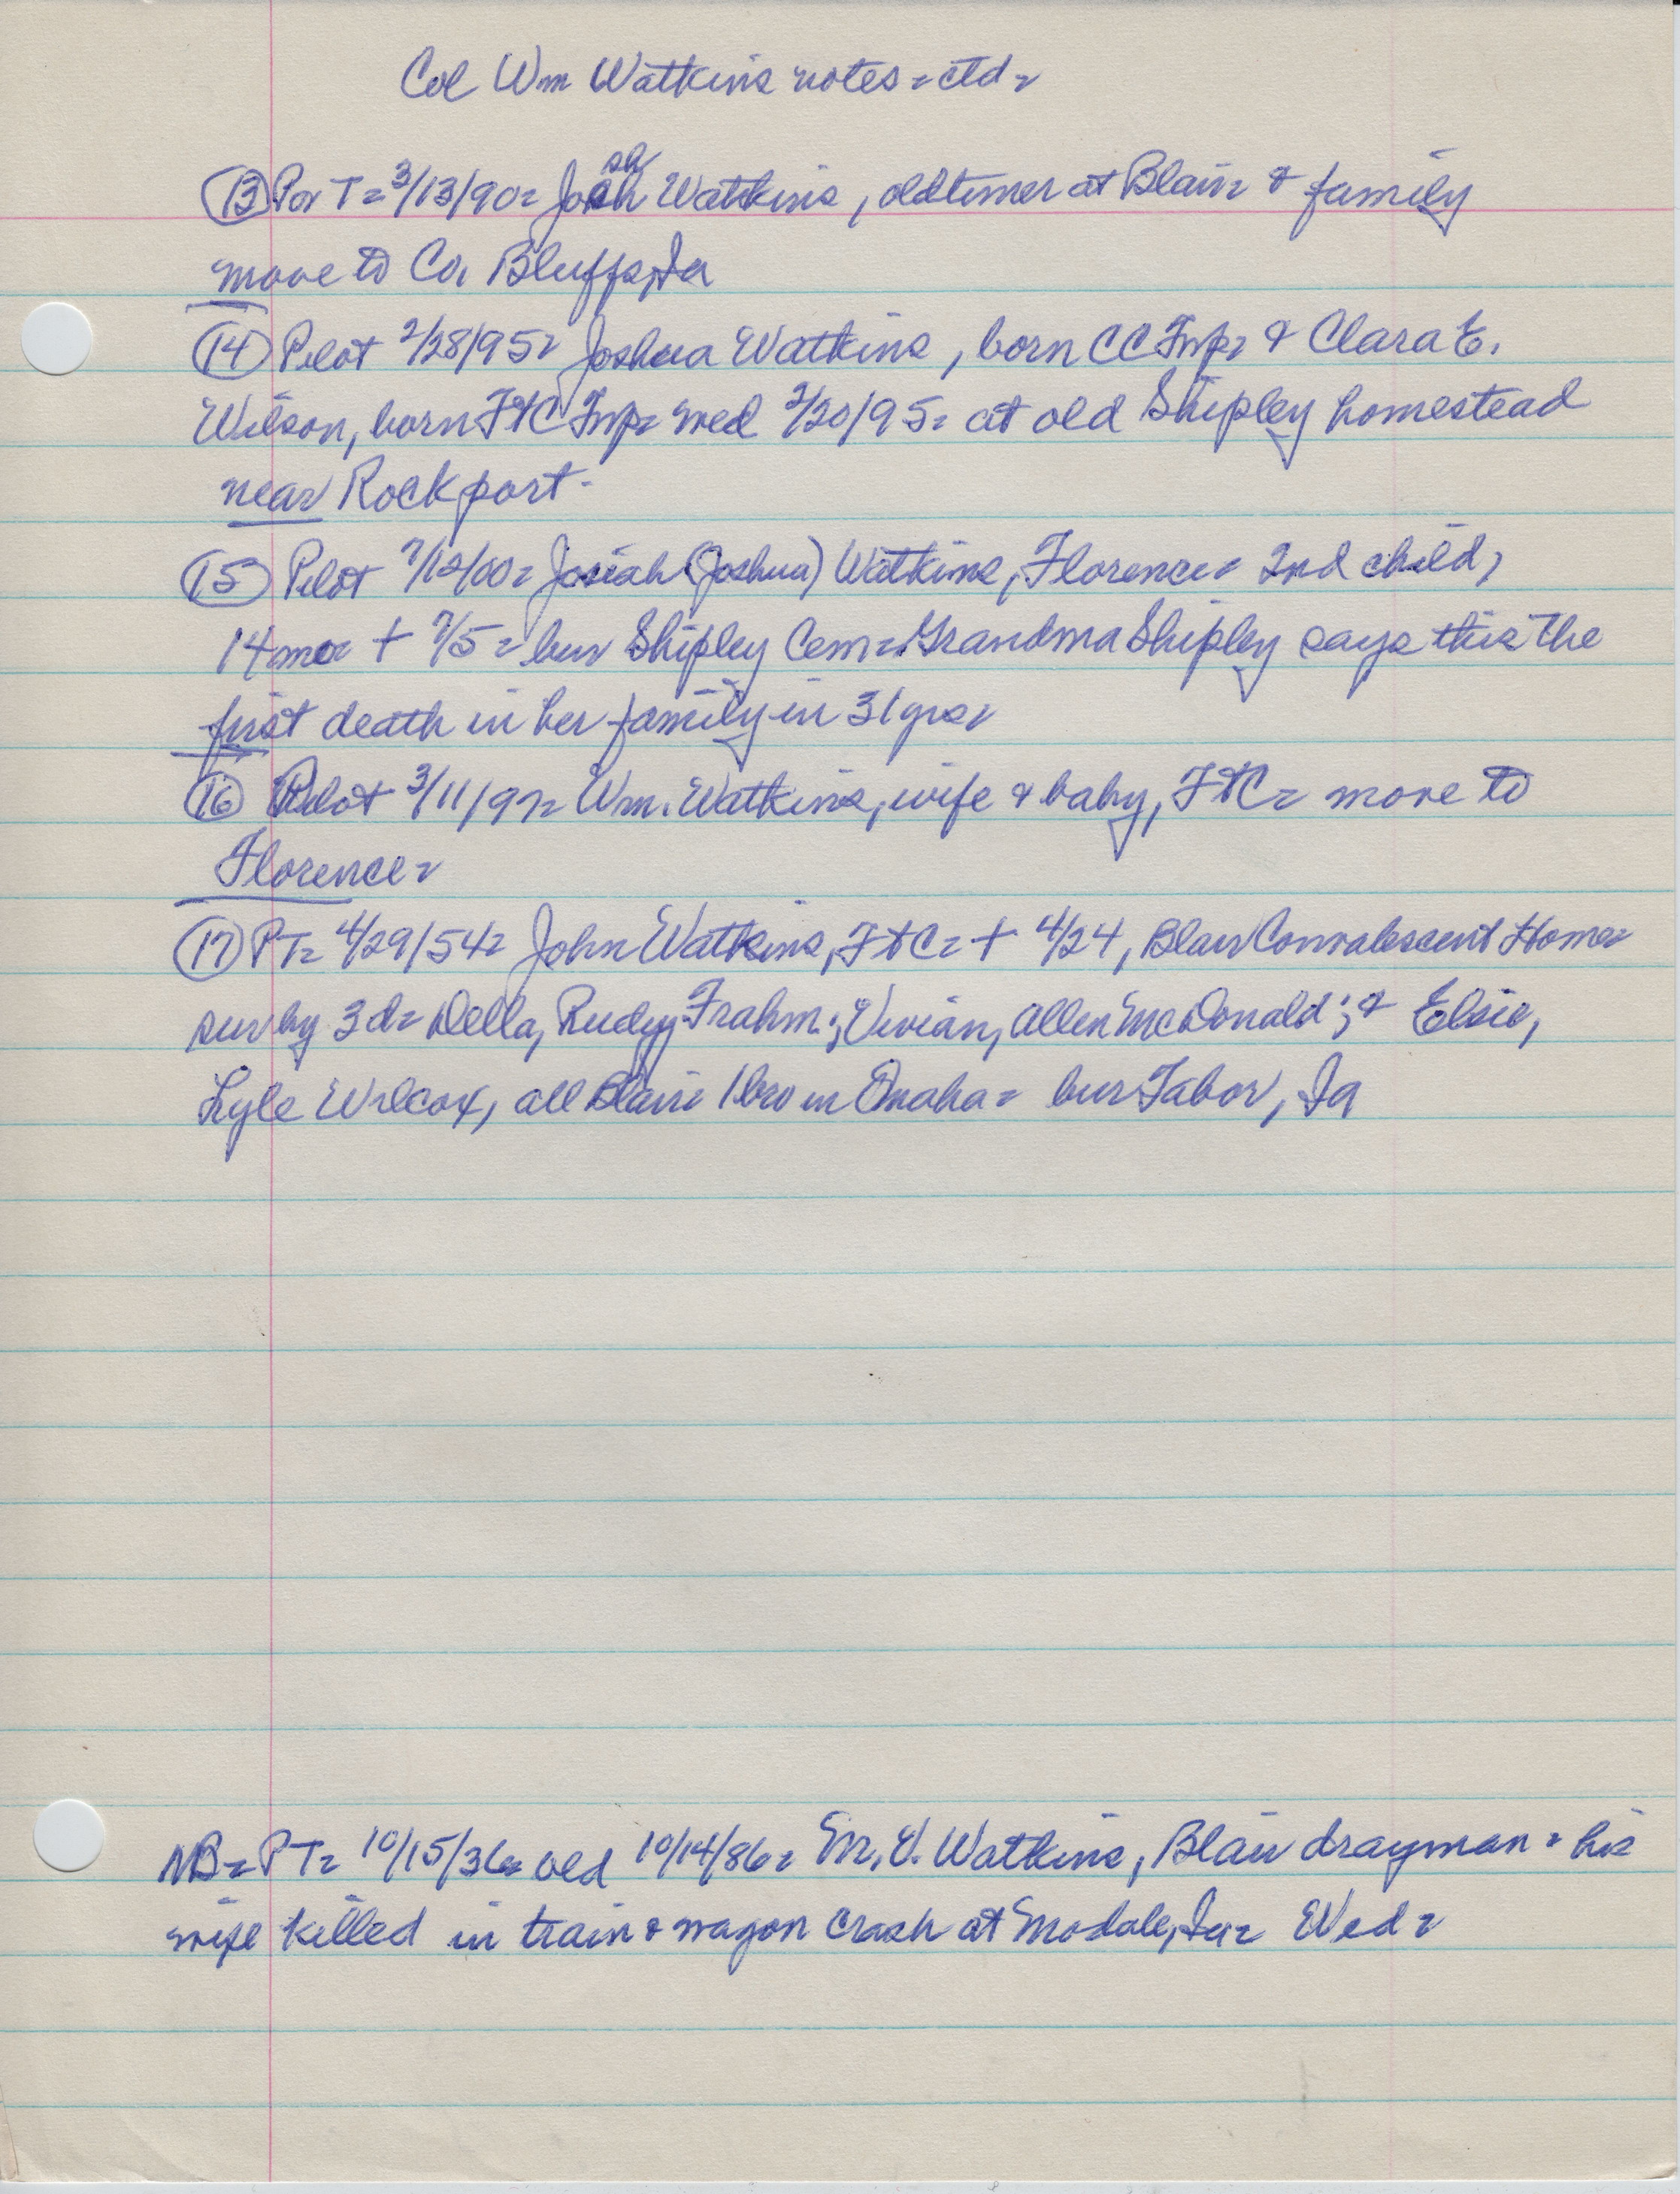 Col Wm Watkins notes = ctd =
sh
(13) Por T = 3/13/90 = Josh Watkins, oldtimer at Blair = & family
move to Co. Bluffs, Ia
(14) Pilot 2/28/95 = Joshua Watkins, born CC Twp = & Clara E.
Wilson, born FtC Twp = wed 2/20/95 = at old Shipley homestead
near Rockport -
(15) Pilot 7/12/00 = Josiah (Joshua) Watkins, Florence = 2nd child,
14 mo = + 7/5 = bur Shipley Cem = Grandma Shipley says this the
first death in her family in 31 yrs =
(16) Pilot 3/11/97 = Wm. Watkins, wife & baby, FtC = move to
Florence =
(17) PT = 4/29/54 = John Watkins, FtC = + 4/24, Blair Convalescent Home =
sur by 3 d = Della, Rudy Frahm; Vivian, Allen McDonald; & Elsie,
Lyle Wilcox, all Blair = 1 bro in Omaha = bur Tabor, Ia
NB = PT = 10/15/36 = old 10/14/86 = M. V. Watkins, Blair drayman = his
wife killed in train & wagon crash at Modale, Ia = Wed =